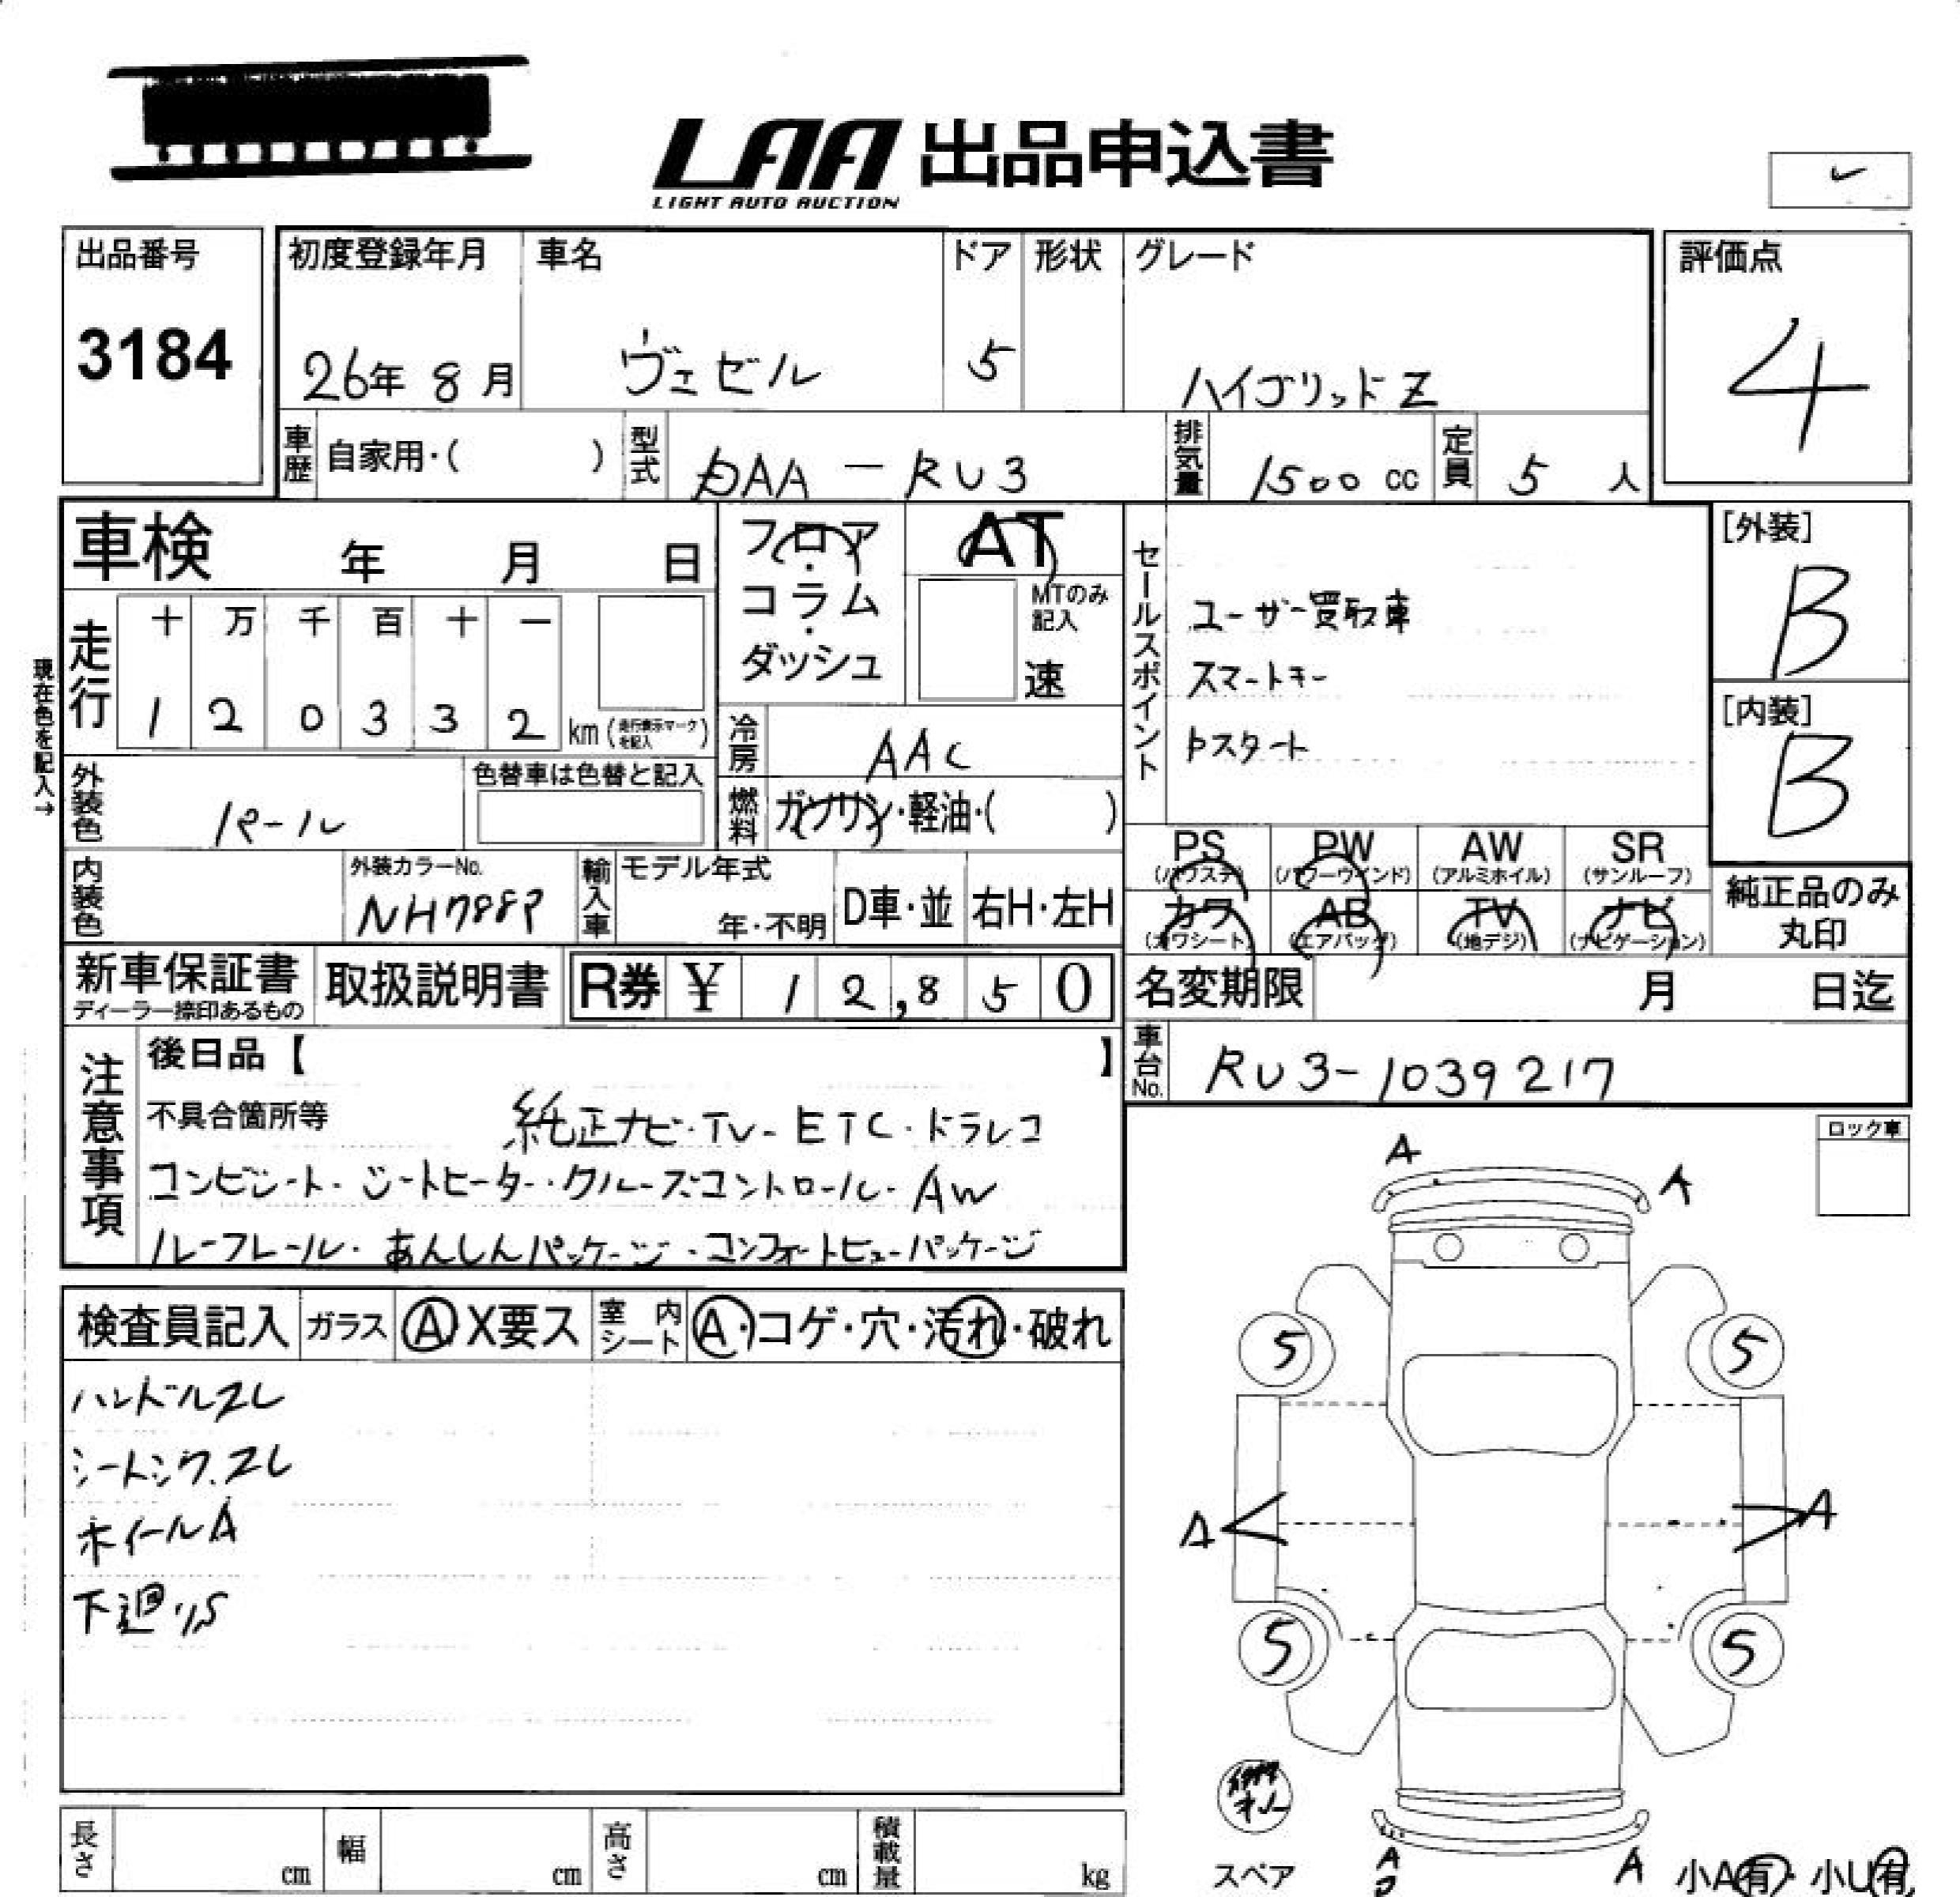 LAA 出品申込書
LIGHT AUTO AUCTION
出品番号
3184
初度登録年月
26年 8月
車名
ヴェゼル
ドア
5
形状
グレード
ハイブリッドZ
評価点
4
車歴
自家用・( )
型式
DAA－RU3
排気量
1500 cc
定員
5 人
車検 年 月 日
フロア・コラム・ダッシュ
AT
MTのみ記入
速
セールスポイント
ユーザー買取車
スマートキー
Pスタート
[外装]
B
[内装]
B
現在色を記入→
走行
十 万 千 百 十 一
1 2 0 3 3 2
km (走行表示マークを記入)
冷房
AAC
外装色
パール
色替車は色替と記入
燃料
ガソリン・軽油・( )
PS (パワステ)
PW (パワーウインド)
AW (アルミホイル)
SR (サンルーフ)
カワ (カワシート)
AB (エアバッグ)
TV (地デジ)
ナビ (ナビゲーション)
純正品のみ丸印
内装色
外装カラーNo.
NH788P
輸入車
モデル年式
年・不明
D車・並
右H・左H
新車保証書
ディーラー捺印あるもの
取扱説明書
R券 ¥ 12,850
名変期限 月 日迄
車台No.
RU3-1039217
注意事項
後日品【 】
不具合箇所等
純正ナビ・TV-ETC・ドラレコ
コンビシート・シートヒーター・クルーズコントロール・AW
ルーフレール・あんしんパッケージ・コンフォートビューパッケージ
ロック車
A
A
検査員記入
ガラス
A X要ス
室内シート
A・コゲ・穴・汚れ・破れ
ハンドルスレ
シートシワ.スレ
ホイールA
下廻りS
5
5
A
A
5
5
スペア
A
A
小A有・小U有
長さ cm
幅 cm
高さ cm
積載量 kg